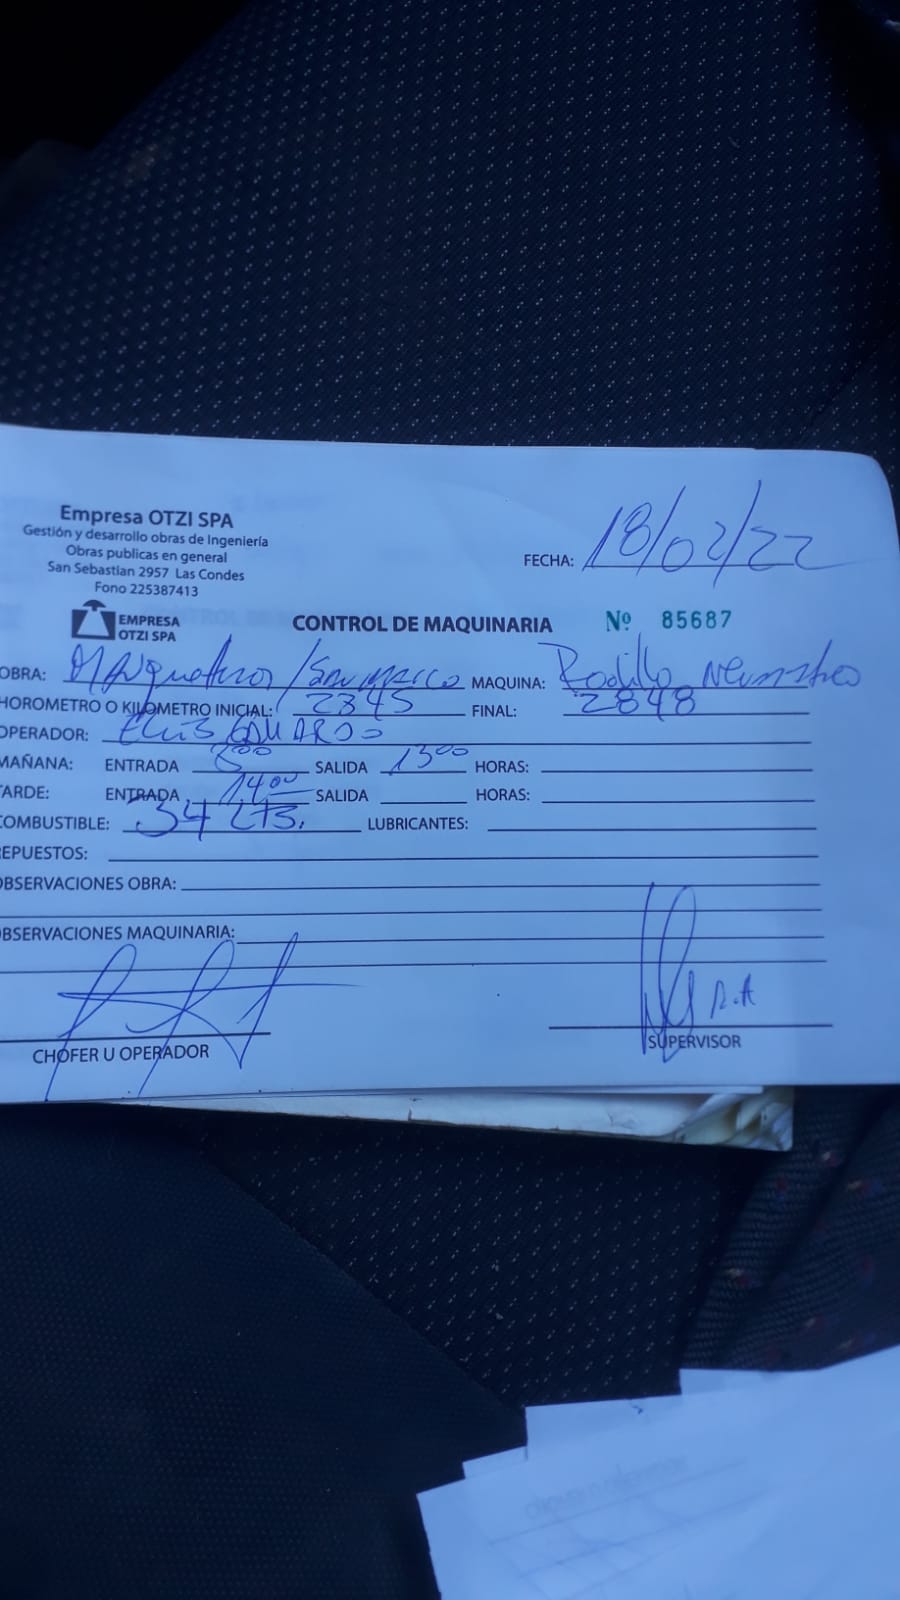 Empresa OTZI SPA
Gestión y desarrollo obras de Ingeniería
Obras publicas en general
San Sebastian 2957 Las Condes
Fono 225387413
FECHA: 18/02/22
EMPRESA
OTZI SPA
CONTROL DE MAQUINARIA Nº 85687
OBRA: MAquehua / San MArco MAQUINA: Rodillo Neumatico
HOROMETRO O KILOMETRO INICIAL: 2845 FINAL: 2848
OPERADOR: ELIS EDUARDO
MAÑANA: ENTRADA 8 00 SALIDA 13 00 HORAS:
TARDE: ENTRADA 14.00 SALIDA HORAS:
COMBUSTIBLE: 34 LTS. LUBRICANTES:
REPUESTOS:
OBSERVACIONES OBRA:
OBSERVACIONES MAQUINARIA:
CHOFER U OPERADOR
SUPERVISOR